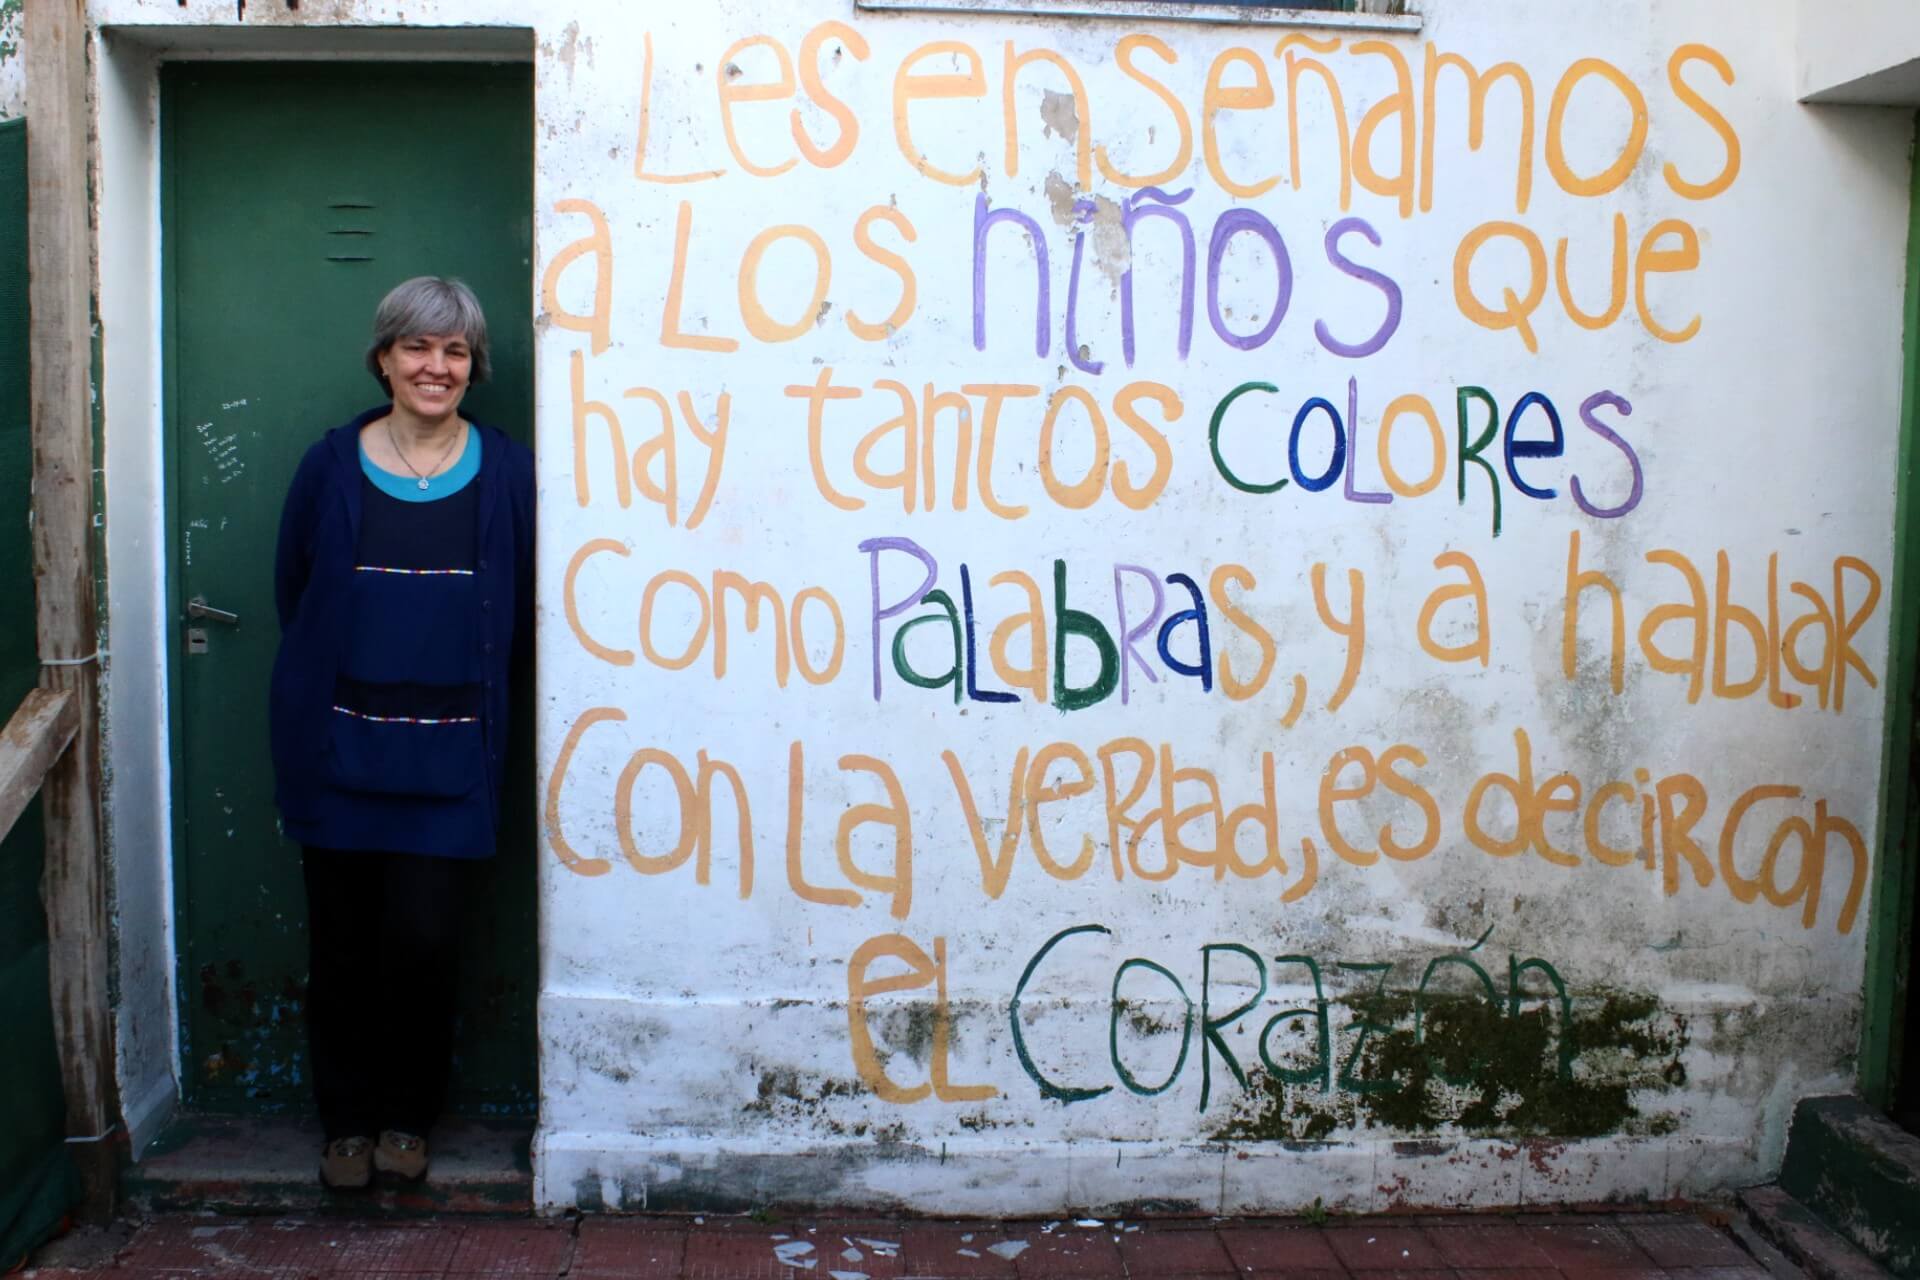 Les enseñamos
a Los niños que
hay tantos Colores
Como Palabras, y a hablar
Con la verdad, es decir con
el Corazón